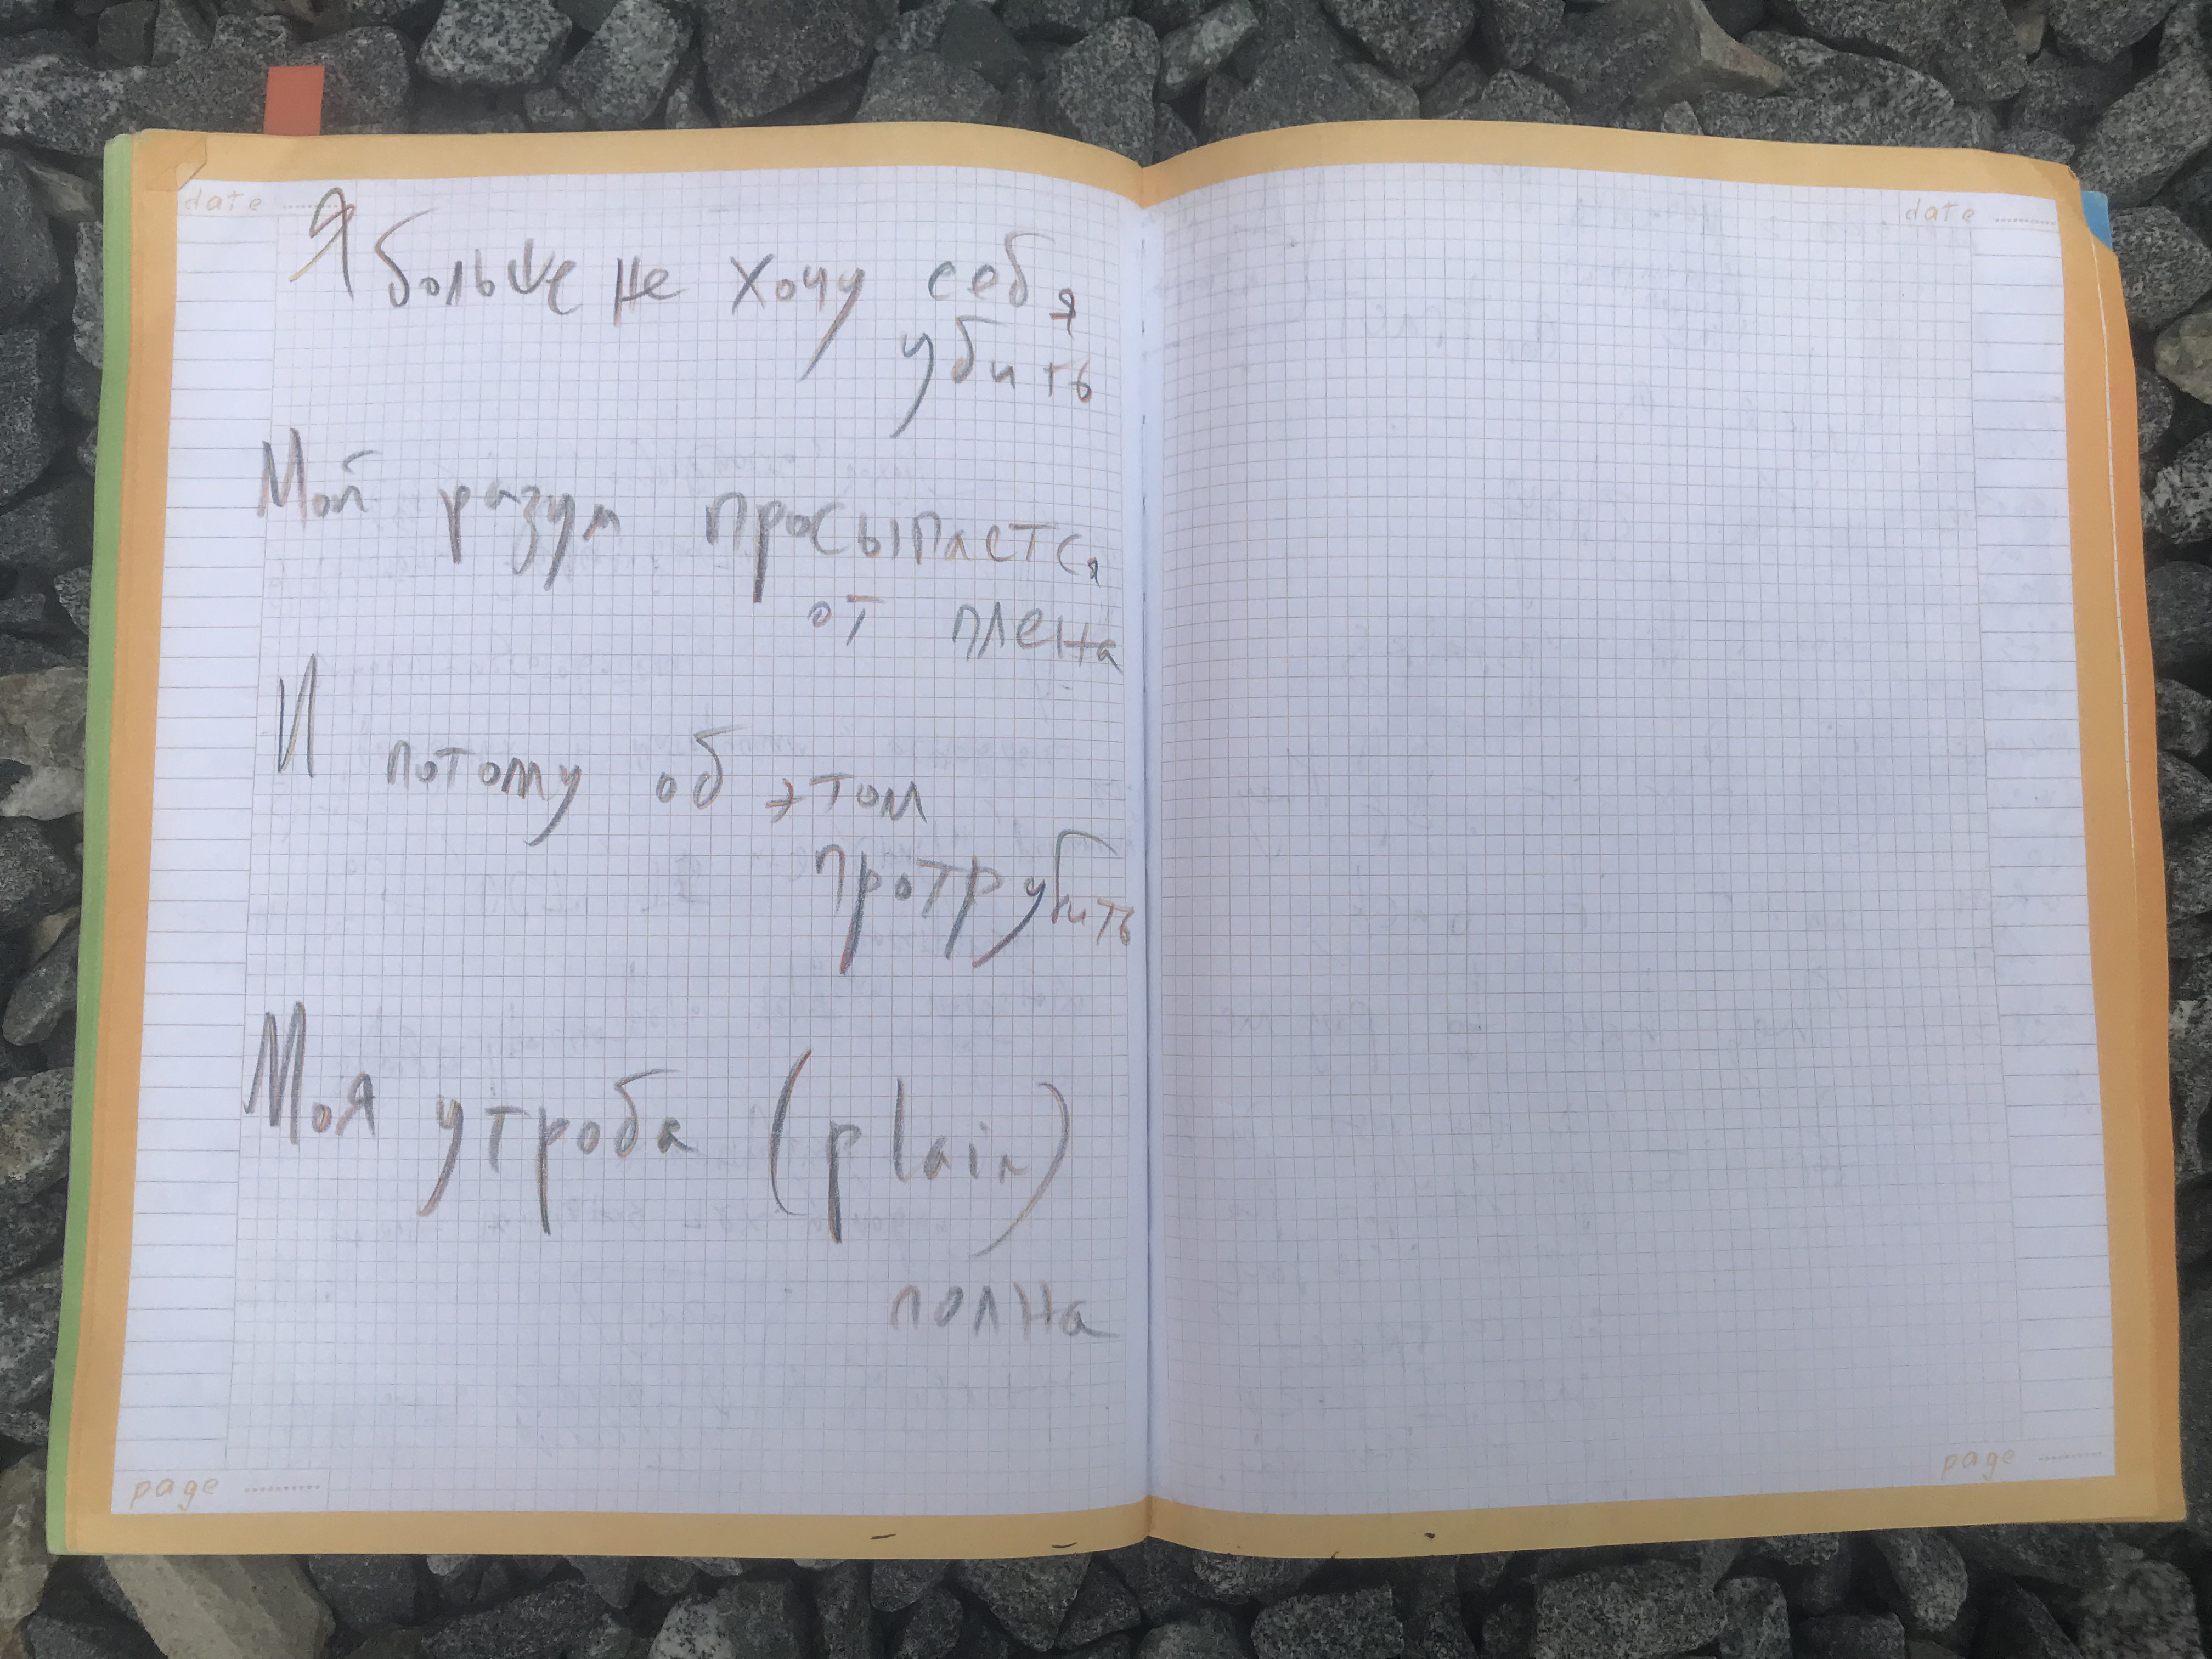 date
Я больше не хочу себя
убить
Мой разум просыпается
от плена
И потому об этом
протрубить
Моя утроба (plain)
полна
page
date
page